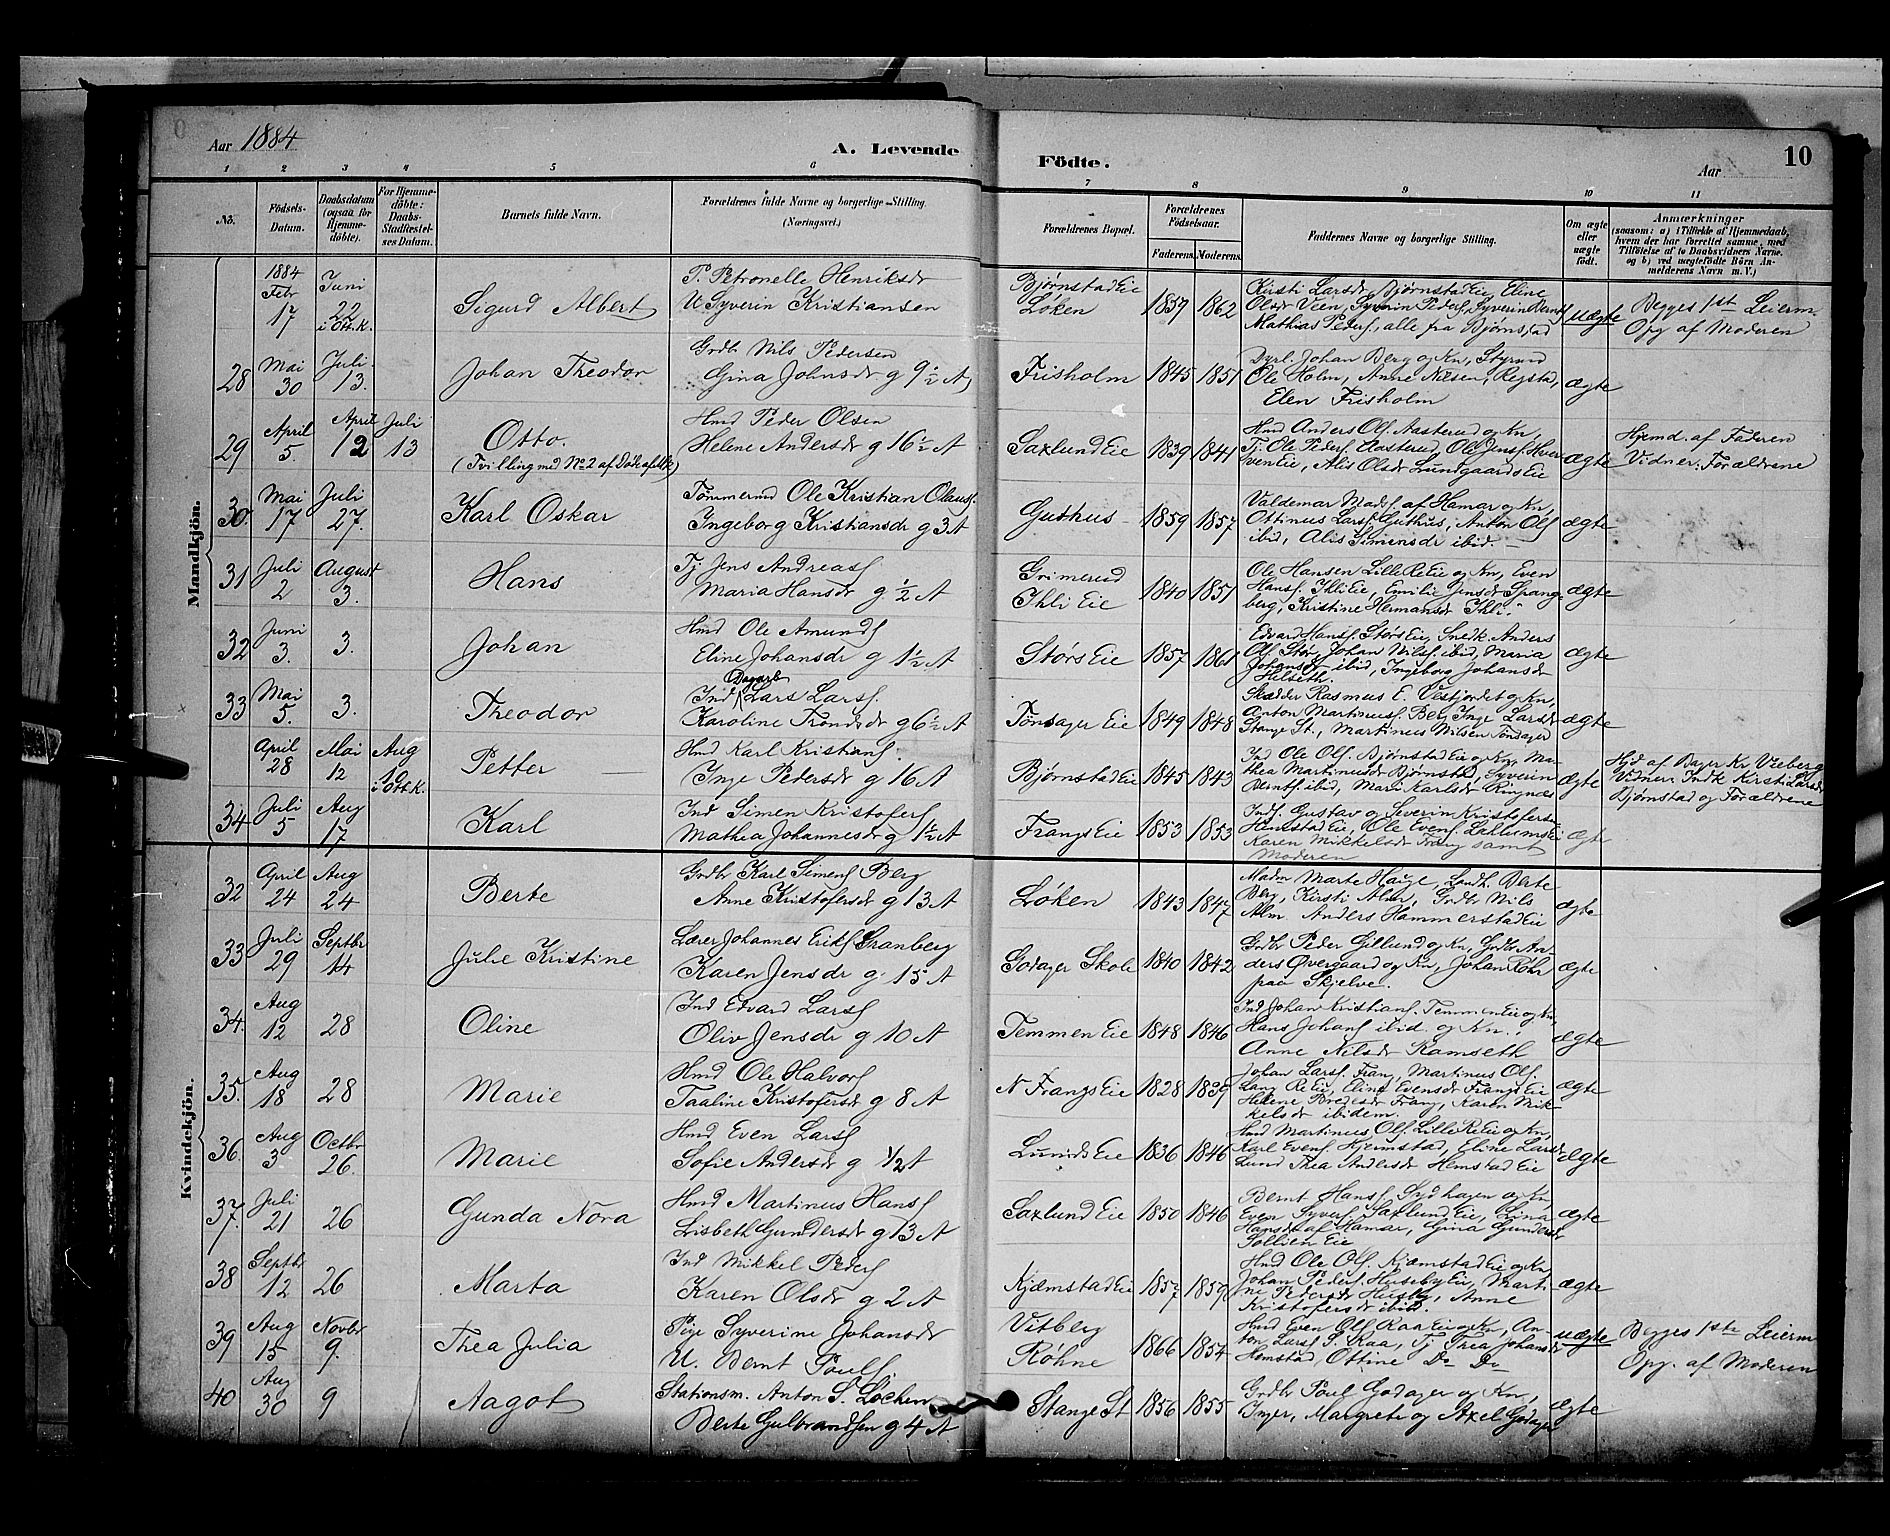 Aar 1884
A. Levende Födte.
Aar
10
1 2 3 4 5 6 7 8 9 10 11
No. Födsels-Datum. Daabsdatum (ogsaa for Hjemmedöbte). For Hjemmedöbte: Daabs-Stadfæstelses Datum. Barnets fulde Navn. Forældrenes fulde Navne og borgerlige Stilling. (Næringsvei.) Forældrenes Bopæl. Forældrenes Födselsaar. Faderens. Moderens. Faddernes Navne og borgerlige Stilling. Om ægte eller uægte födt. Anmærkninger (saasom: a) i Tilfælde af Hjemmedaab, hvem der har forrettet samme, med Tilföielse af to Daabsvidners Navne, og b) ved uægtefödte Börn Anmelderens Navn m. V.)
Mandkjön.
1884 Febr 17 Juni 22 i Ott.K. Sigurd Albert P. Petronelle Henriksdr U Syverin Kristiansen Bjørnstad Eie Løken 1857 1862 Kirsti Larsdr Bjørnstad Eie, Eline Olsdr Veen, Syverin Peders, Syverin Bernts Mathias Peders, alle fra Bjørnstad uægte Begges 1ste Leierm Opg af Moderen
28 Mai 30 Juli 13. Johan Theodor Grdbr Nils Pedersen Gina Johnsdr g 9 1/2 A Frisholm 1845 1851 Dyrl. Johan Berg og Kn, Styrmd Ole Holm, Anne Nilsen, Regstad, Elen Frisholm ægte
29 April 5. April 12 Juli 13 Otto. (Tvilling med No 2 af Døde) Hmd Peder Olsen Helene Andersdr g 16 1/2 A Saxlund Eie 1839 1841 Hmd Anders Ols. Aasterud og Kn, Tj Ole Peders. Aasterud, Ole Jens. Eie, Alis Olsdr Lundgaards Eie ægte Hjemd. af Faderen Vidner: Forældrene
30. Mai 17 Juli 27. Karl Oskar Tømmermd Ole Kristian Olaus. Ingeborg Kristiansdr g 3 A Guthus 1859 1857 Valdemar Mads. af Hamar og Kn, Ottinus Lars. Guthus, Anton Ols ibid, Alis Simensdr ibid. ægte
31 Juli 2 August 3. Hans Tj Jens Andreas Maria Hansdr g. 1/2 A Grimerud Ihli Eie 1840 1851 Ole Hansen Lille Re Eie og Kn, Even Hans. Ihli Eie, Emilie Jensdr Spangberg, Kristine Hermansdr Ihli. ægte
32 Juni 3. 3. Johan Hmd Ole Amunds Eline Johansdr g 1 1/2 A Størs Eie 1857 1861 Edvard Hans. Størs Eie, Snedk. Anders Ols. Stør, Johan Nils. ibid, Maria Johansdr ibid, Ingeborg Johansdr Helseth. ægte
33 Mai 5. 3. Theodor Ind Lars Lars. Karoline Trondsdr g 6 1/2 A Tønsager Eie 1849 1848 Skrædder Rasmus E. Vesfjordet og Kn, Anton Martinus. Berg, Inge Larsdr Stange St., Martinus Nilsen Tønsager ægte
April 28 Mai 12 Aug 10 i Ott.K. Petter Hmd Karl Kristians. Inge Pedersdr g 16 A Bjørnstad Eie 1845 1843 Ind Ole Ols. Bjørnstad Eie og Kn, Mathea Martinusdr Bjørnstd, Syverin Bernts. ibid, Marie Karlsdr Ringnæs ægte Hjd af Bager Kr Veeberg Vidner Indk Kirsti Larsdr Bjørnstad og Forældrene
34 Juli 5 Aug 17 Karl Ind Simen Kristofers Mathea Johannesdr g 1 1/2 A Frangs Eie 1853 1853 Inds. Gustav og Severin Kristofers. Hemstad Eie, Ole Evens. Karen Mikkelsdr Frang samt Moderen ægte
Kvindekjön.
32 April 24 Aug 24 Berte Grdbr Karl Simens Berg Anne Kristofersdr g 13 A Løken 1843 1847 Madm Marte Hauge, Landh. Berte Berg, Kirsti Alm, Grdbr Nils Alm. Anders Hammerstad Eie ægte
33 Juli 29 Septbr 14 Julie Kristine Lærer Johannes Eriks Granberg Karen Jensdr g. 15 A Godager Skole 1840 1842 Grdbr Peder Gillund og Kn, Grdbr Anders Øvergaard og Kn, Johan Røhr paa Skjelve. ægte
34. Aug 12 28 Oline Ind Edvard Lars Oliv Jensdr g 10 A Temmen Eie 1848 1846 Ind Johan Kristians. Temmen Eie og Kn, Hans Johans ibid. og Kn., Anne Nilsdr Ramseth ægte
35. Aug 18 28 Marie Hmd Ole Halvors Taaline Kristofersdr g 8 A N Frangs Eie 1828 1839 Johan Lars. Fran, Martinus Ols. Lang Re Eie, Eline Evensdr Frangs Eie Helene Bredesdr Frang, Karen Mikkelsdr ibidem. ægte
36. Aug 3 Octbr 26. Marie Hmd Even Lars Sofie Andersdr g 1/2 A Lunds Eie 1836 1846 Hmd Martinus Ols. Lille Re Eie og Kn, Karl Evens. Hjemstad, Eline Larsdr Lund Thea Andersdr Hemstad Eie ægte
37. Juli 21 26 Gunda Nora Hmd Martinus Hans Lisbeth Gundersdr g 13 A Saxlund Eie 1850 1846 Bernt Hans. Sydhagen og Kn, Even Syvers. Saxlund Eie, Lina Hansdr af Hamar, Gina Gundersdr Sollien Eie ægte
38 Septbr 12 26 Marta Ind Mikkel Peders Karen Olsdr g 2 A Kjæmstad Eie 1857 1859 Hmd Ole Ols. Kjæmstad Eie og Kn Johan Peders. Huseby Eie, Martine Pedersdr Huseby, Anne Kristofersdr ibid. ægte
39 Aug 15 Novbr 9. Thea Julia Pige Syverine Johansdr U. Bernt Pouls. Vitberg Røhne 1866 1854 Hmd Even Ols. Raa Eie og Kn, Anton Lars. S. Raa, Tj Thea Johansdr Hemstad, Ottine Do Do uægte Begges 1ste Leierm Opg. af Moderen
40 Aug 30 9 Aagot Stationsm. Anton S. Lochen Berte Gulbrandsen g 4 A Stange St 1856 1855 Grdbr Poul Godager og Kn, Inger, Margrete og Axel Godager ægte